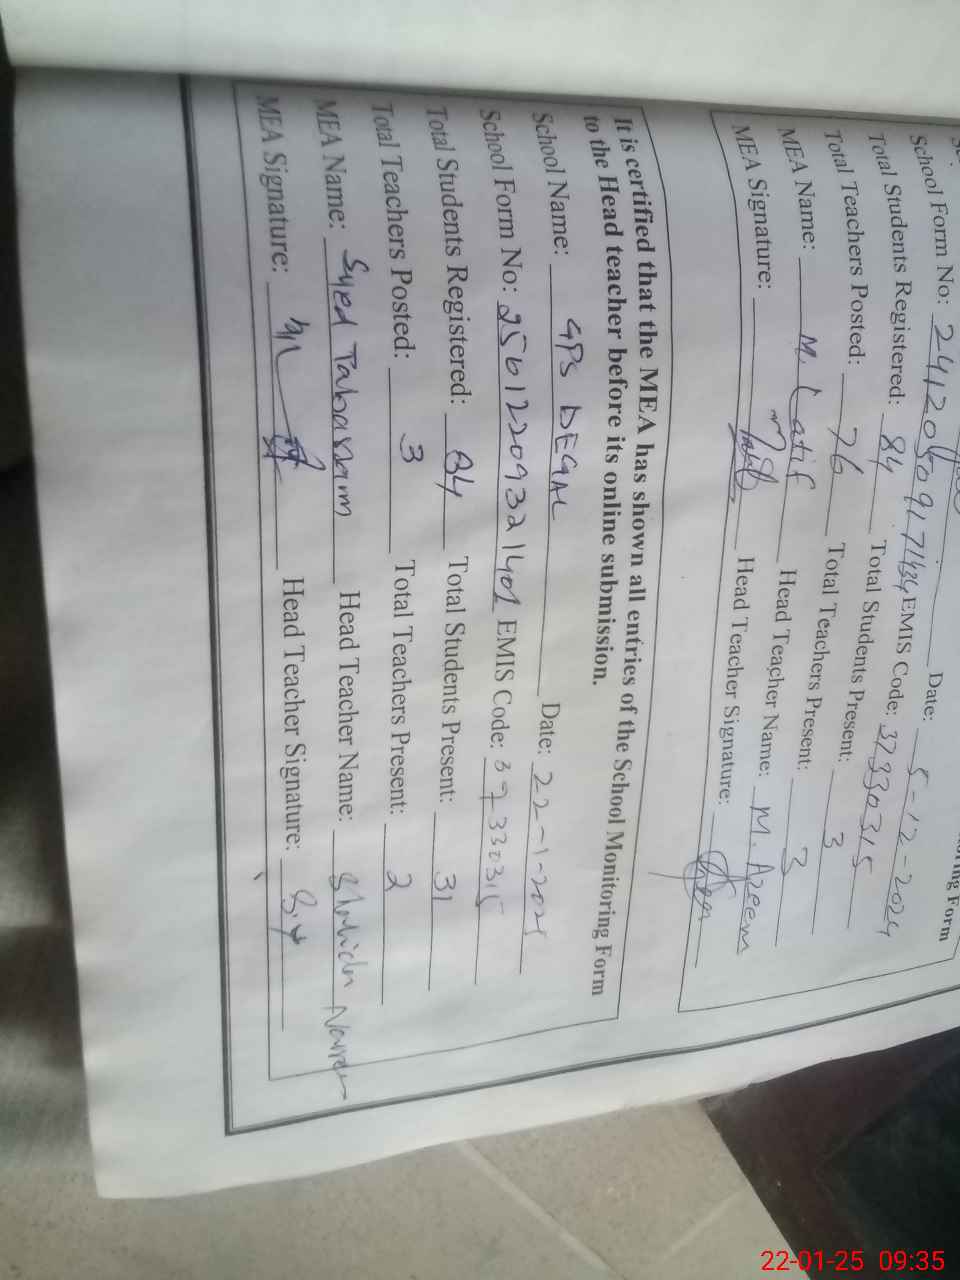 ring Form
Date: 5-12-2024
School Form No: 24120509171434 EMIS Code: 37330315
Total Students Registered: 84 Total Students Present:
Total Teachers Posted: 76 Total Teachers Present: 3
MEA Name: M. Latif Head Teacher Name: M. Azeem
MEA Signature: Head Teacher Signature:
It is certified that the MEA has shown all entries of the School Monitoring Form
to the Head teacher before its online submission.
School Name: GPS DEGAL Date: 22-1-2025
School Form No: 25612209321401 EMIS Code: 37330315
Total Students Registered: 84 Total Students Present: 31
Total Teachers Posted: 3 Total Teachers Present: 2
MEA Name: Syed Tabassam Head Teacher Name:
MEA Signature: Head Teacher Signature:
22-01-25 09:35